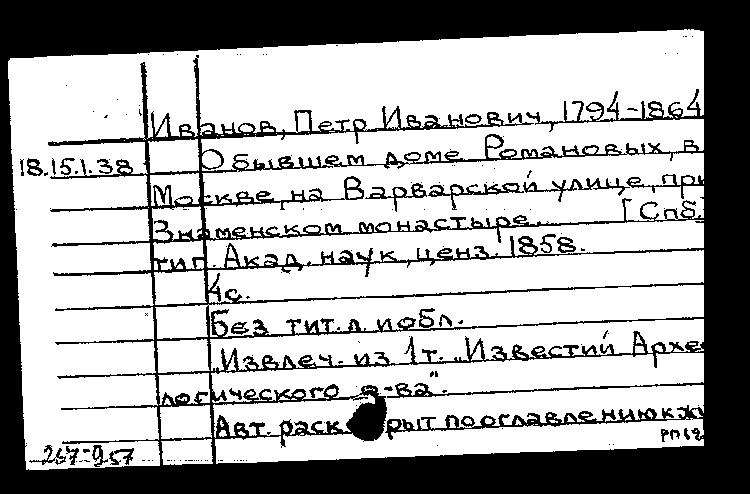 Иванов, Петр Иванович, 1794-1864
18.15.1.38 О бывшем доме Романовых, в
Москве, на Варварской улице, при
Знаменском монастыре. [Спб.]
тип. Акад. наук, ценз. 1858.
4с.
Без тит. л. и обл.
„Извлеч. из 1 т. „Известий Архео
логического о-ва".
Авт. раскрыт по оглавлению к жу
267-957